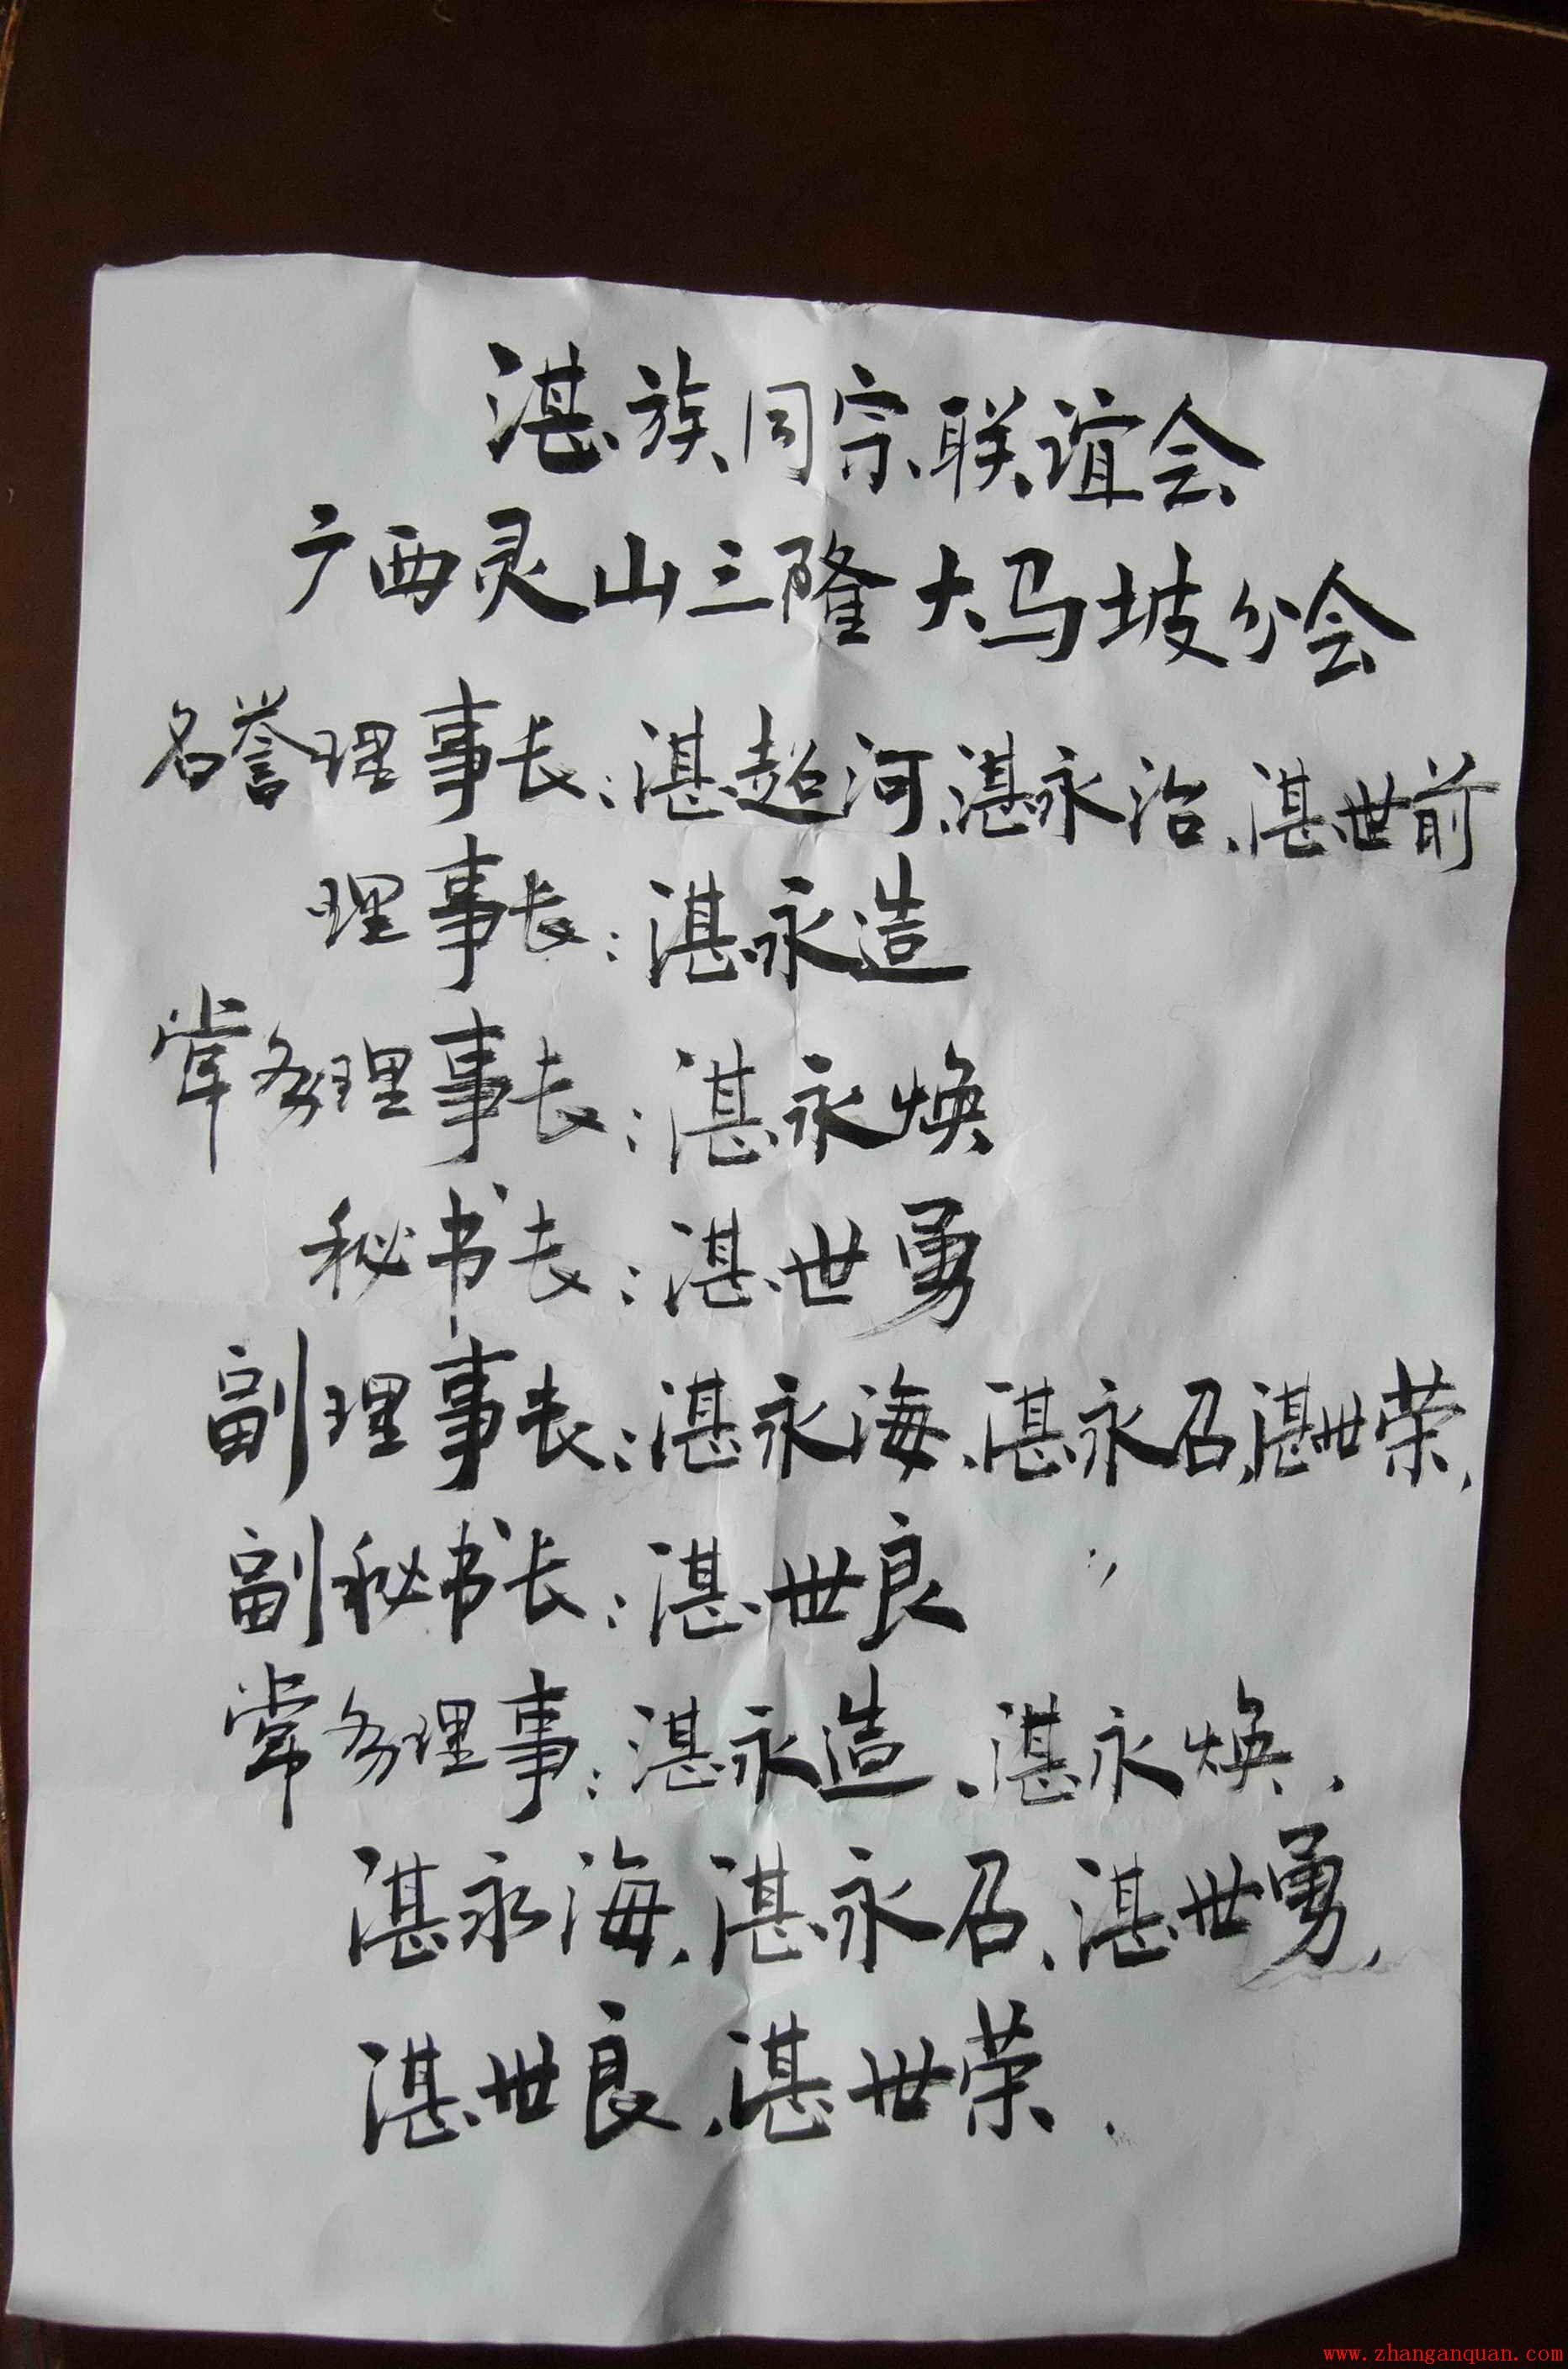 湛族同宗联谊会
广西灵山三隆大马坡分会
名誉理事长:湛超河、湛永治、湛世前
理事长:湛永造
常务理事长:湛永焕
秘书长:湛世勇
副理事长:湛永海、湛永召、湛世荣、
副秘书长:湛世良
常务理事:湛永造、湛永焕、
湛永海、湛永召、湛世勇、
湛世良、湛世荣、
www.zhanganquan.com